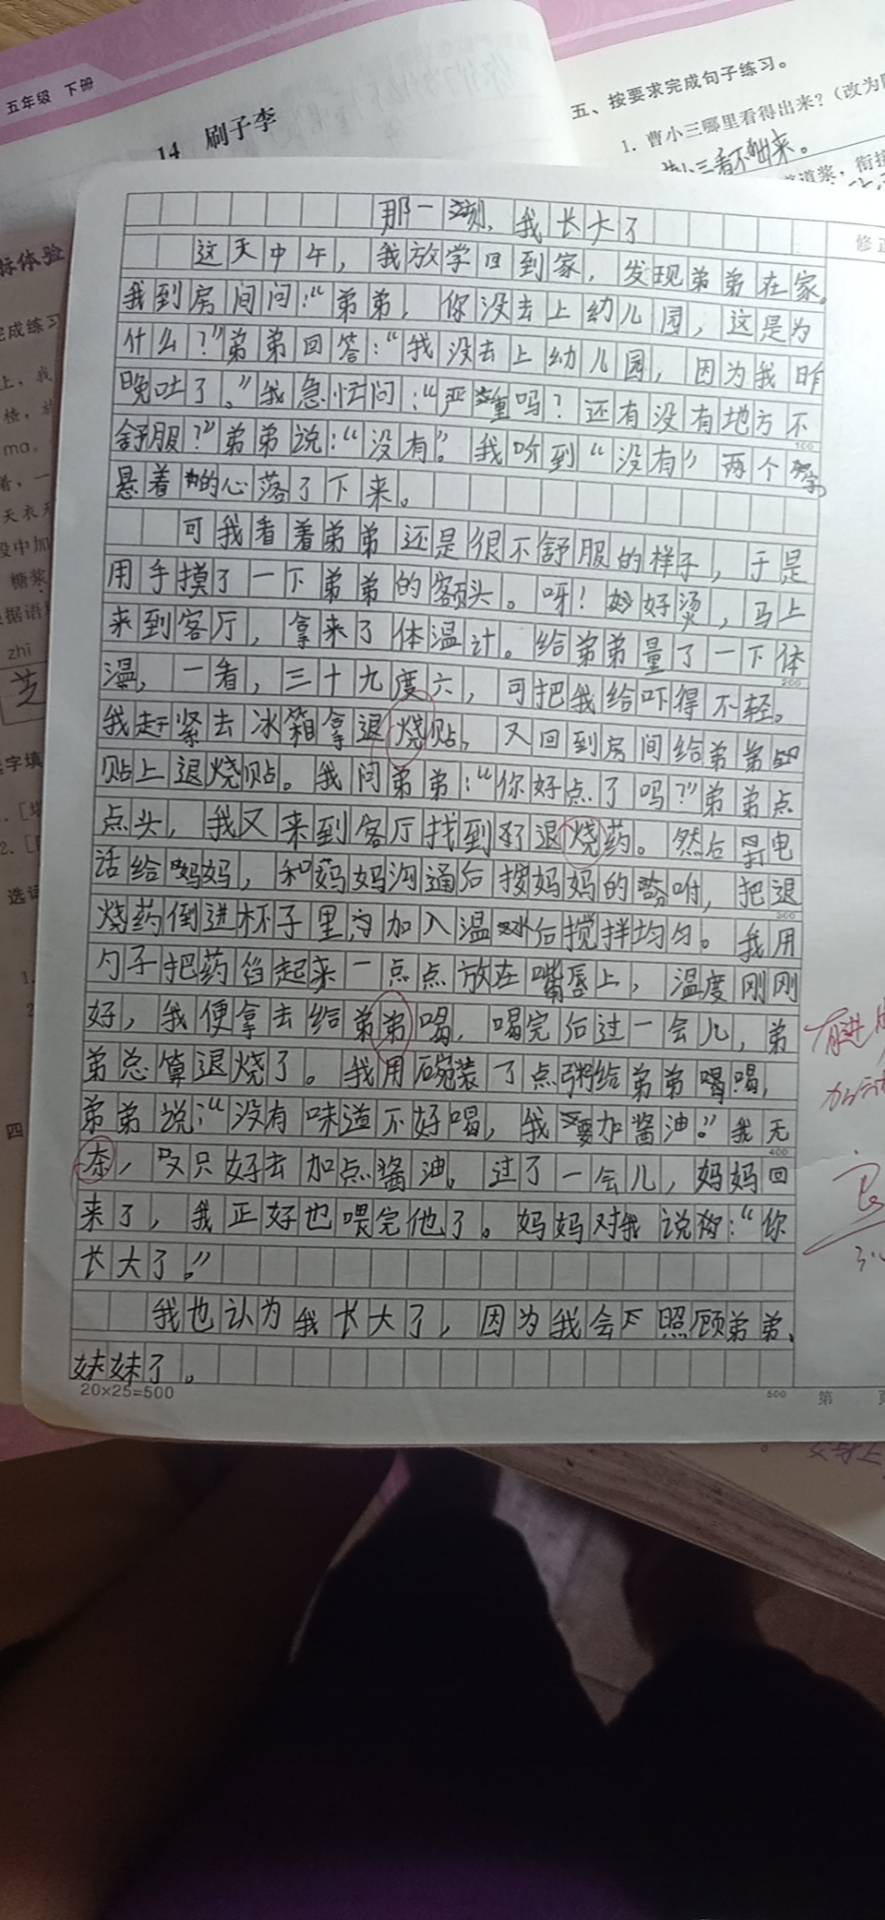 五年级 下册
14 刷子李
五、按要求完成句子练习。
1. 曹小三哪里看得出来？(改为
小三看不出来。
那一刻，我长大了
修正
这天中午，我放学回到家，发现弟弟在家。
我到房间问：“弟弟，你没去上幼儿园，这是为
什么？”弟弟回答：“我没去上幼儿园，因为我昨
晚吐了。”我急忙问：“严重吗？还有没有地方不
舒服？”弟弟说：“没有”。我听到“没有”两个字
悬着的心落了下来。
可我看着弟弟还是很不舒服的样子，于是
用手摸了一下弟弟的额头。呀！好烫，马上
来到客厅，拿来了体温计。给弟弟量了一下体
温，一看，三十九度六，可把我给吓得不轻。
我赶紧去冰箱拿退烧贴，又回到房间给弟弟
贴上退烧贴。我问弟弟：“你好点了吗？”弟弟点
点头，我又来到客厅找到了退烧药。然后打电
话给妈妈，和妈妈沟通后按妈妈的吩咐，把退
烧药倒进杯子里，加入温水后搅拌均匀。我用
勺子把药舀起来一点点放在嘴唇上，温度刚刚
好，我便拿去给弟弟喝，喝完后过一会儿，弟
弟总算退烧了。我用碗装了点粥给弟弟喝喝，
弟弟说：“没有味道不好喝，我要加酱油。”我无
奈，又只好去加点酱油。过了一会儿，妈妈回
来了，我正好也喂完他了。妈妈对我说：“你
长大了。”
我也认为我长大了，因为我会照顾弟弟、
妹妹了。
20×25=500
500
第